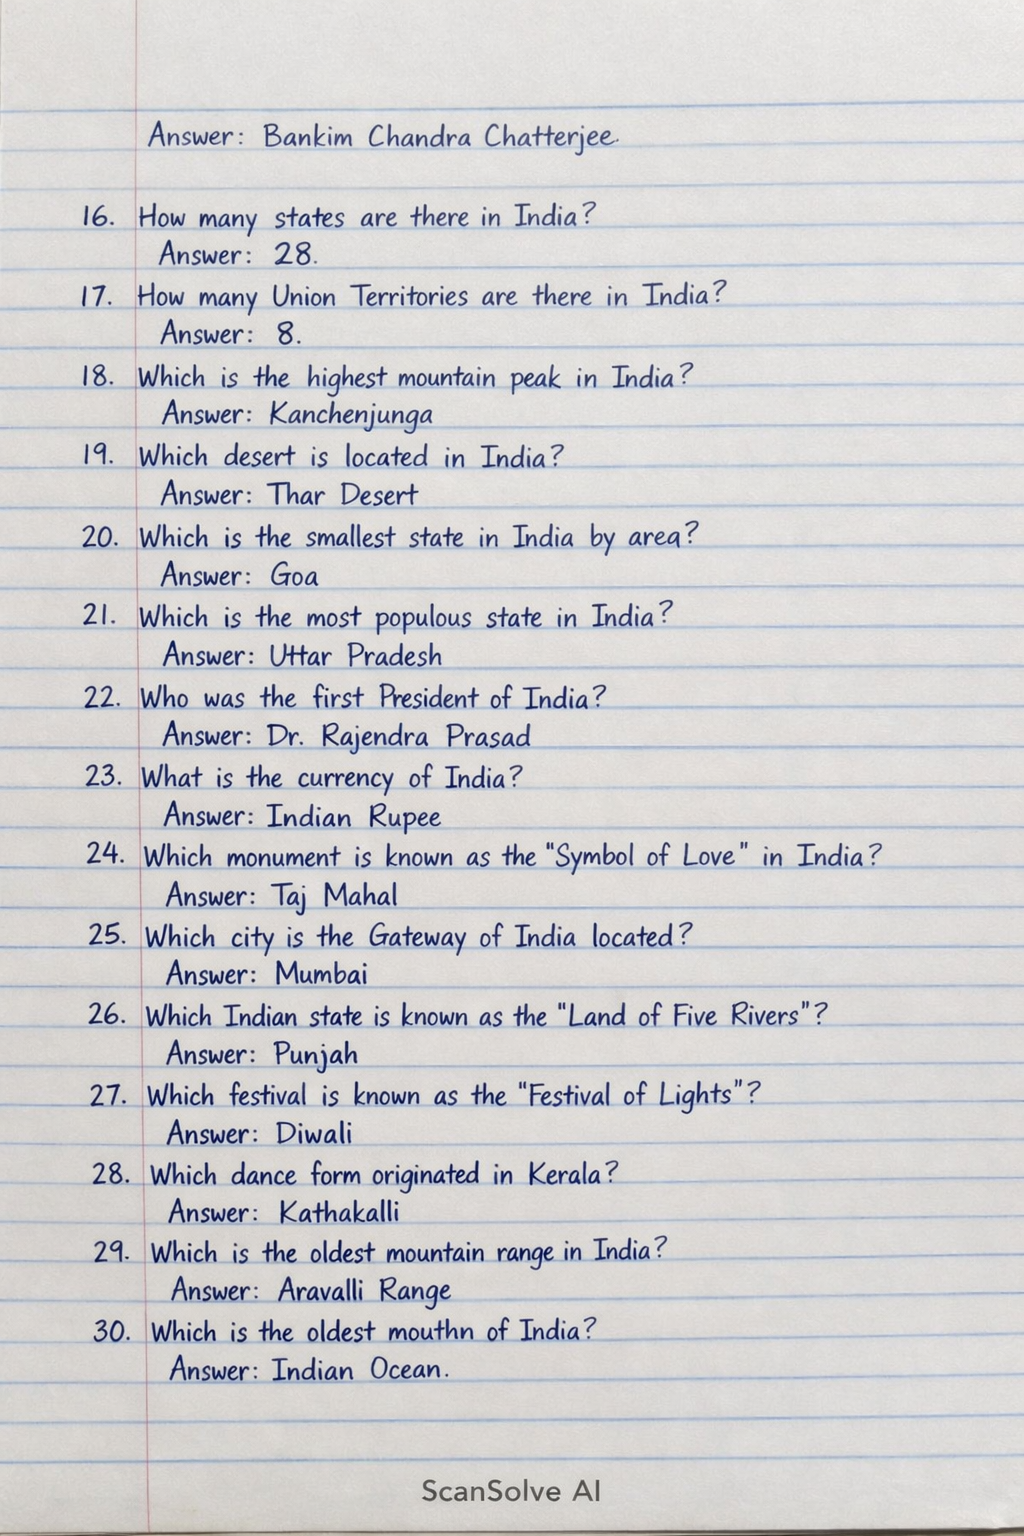 Answer: Bankim Chandra Chatterjee.
16. How many states are there in India?
Answer: 28.
17. How many Union Territories are there in India?
Answer: 8.
18. Which is the highest mountain peak in India?
Answer: Kanchenjunga
19. Which desert is located in India?
Answer: Thar Desert
20. Which is the smallest state in India by area?
Answer: Goa
21. Which is the most populous state in India?
Answer: Uttar Pradesh
22. Who was the first President of India?
Answer: Dr. Rajendra Prasad
23. What is the currency of India?
Answer: Indian Rupee
24. Which monument is known as the "Symbol of Love" in India?
Answer: Taj Mahal
25. Which city is the Gateway of India located?
Answer: Mumbai
26. Which Indian state is known as the "Land of Five Rivers"?
Answer: Punjah
27. Which festival is known as the "Festival of Lights"?
Answer: Diwali
28. Which dance form originated in Kerala?
Answer: Kathakalli
29. Which is the oldest mountain range in India?
Answer: Aravalli Range
30. Which is the oldest mouthn of India?
Answer: Indian Ocean.
ScanSolve AI